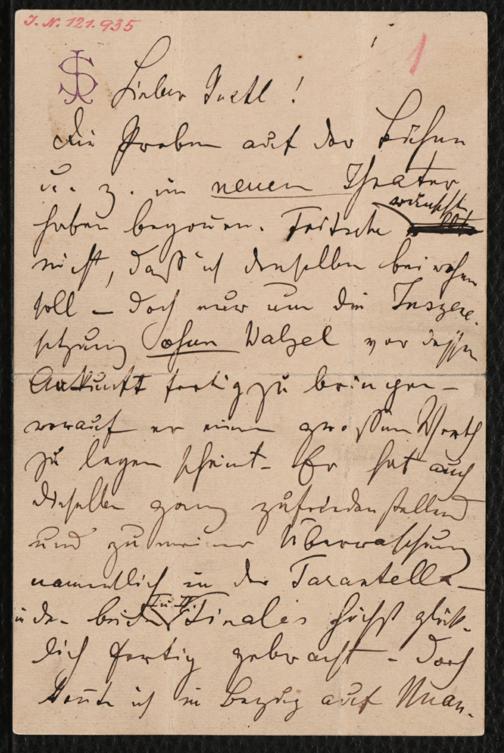 I. N. 121.935
1
JS
Lieber Jretl!
Die Proben auf der Bühne
u. z. im neuen Theater
haben begonen. Fritsche wünscht
nicht, daß ich denselben beiwohnen
soll – doch nur um die Inszene-
setzung ohne Walzel vor dessen
Ankunft fertig zu bringen –
worauf er einen großen Werth
zu legen scheint – Er hat auch
dieselbe ganz zufriedenstellend
und zu meiner Überraschung
namentlich in der Tarantella –
in den beiden I u II Finales höchst glück-
lich fertig gebracht – doch
konnte ich in Bezug auf Nuan-